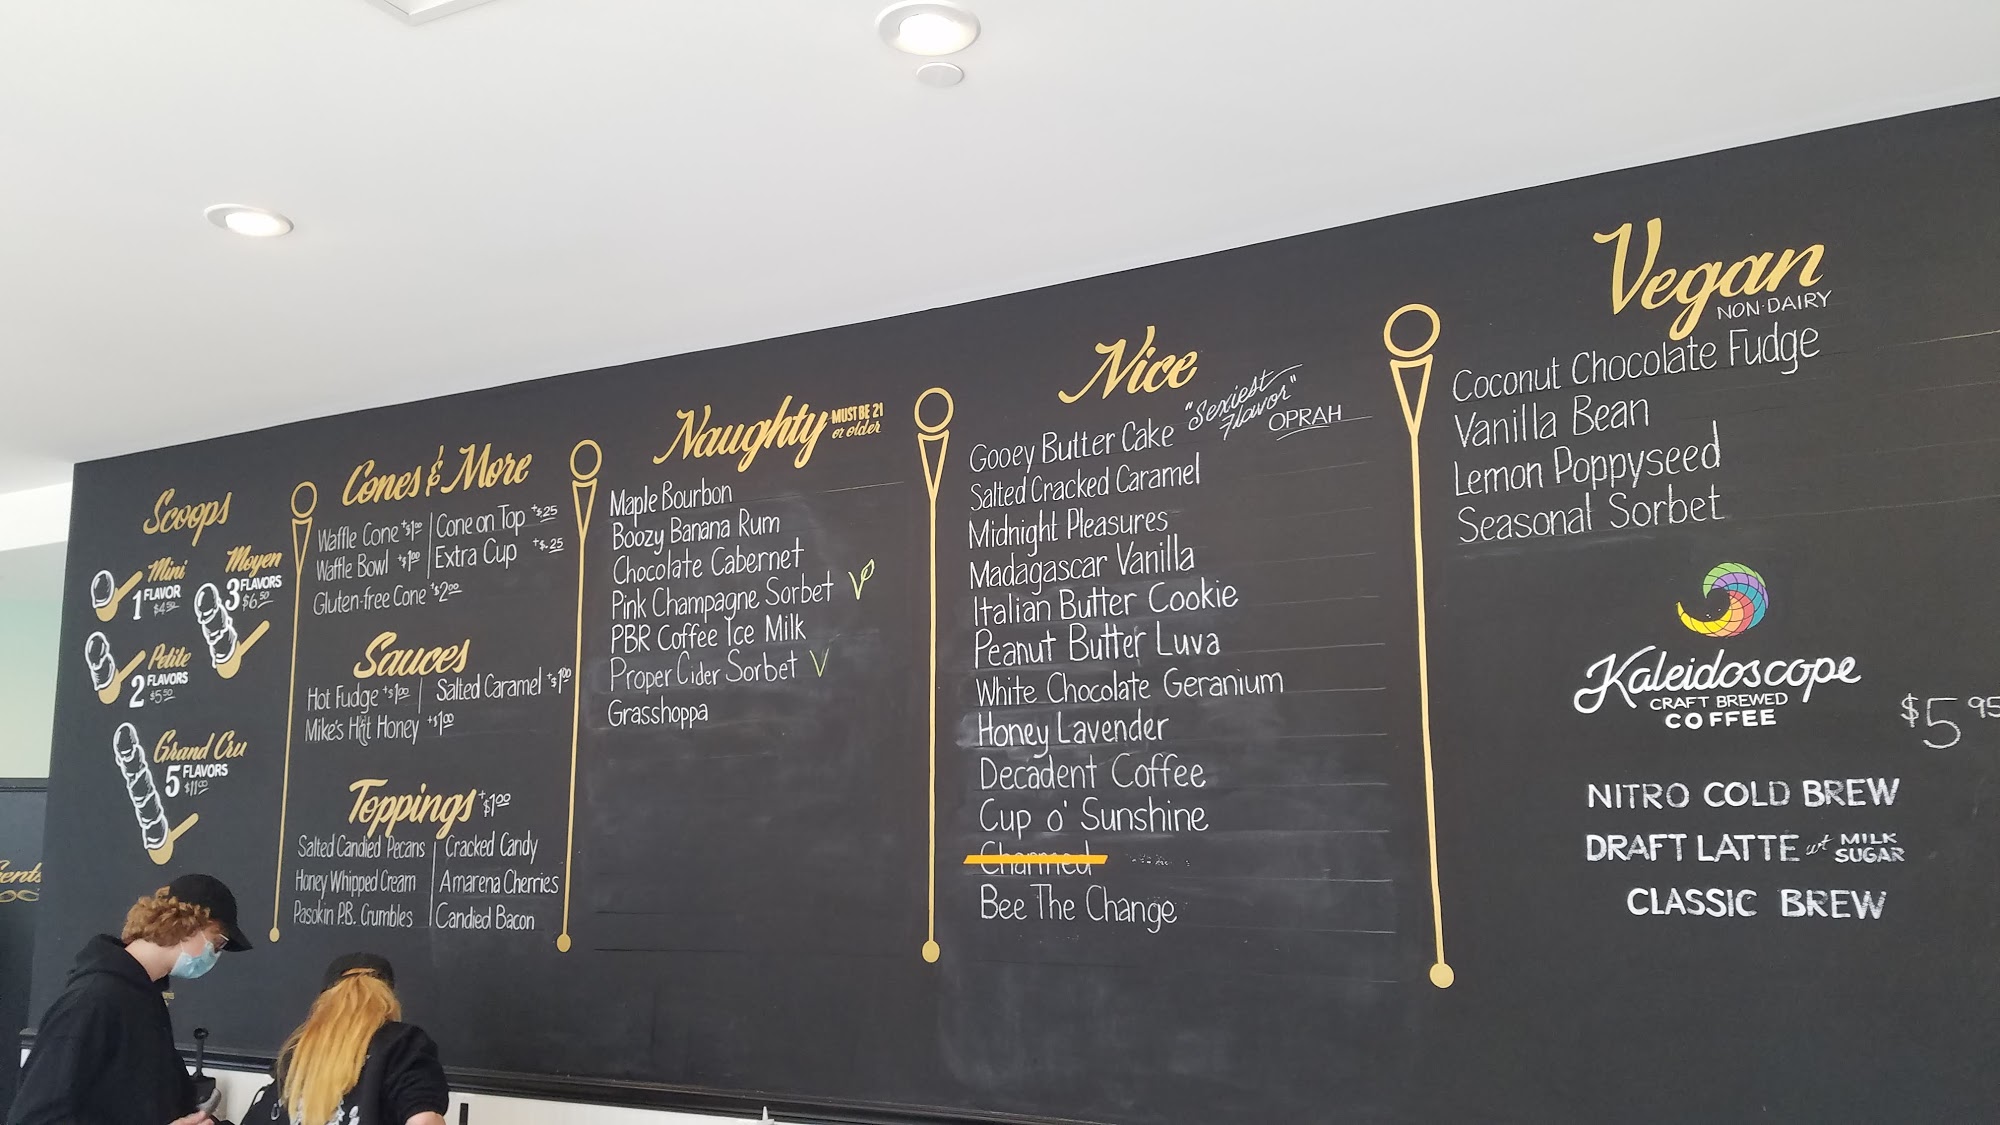 Scoops
Mini
1 FLAVOR
$4.50
Moyen
3 FLAVORS
$6.50
Petite
2 FLAVORS
$5.50
Grand Cru
5 FLAVORS
$11.00
Cones & More
Waffle Cone +$1.00 | Cone on Top +$.25
Waffle Bowl +$1.00 | Extra Cup +$.25
Gluten-free Cone +$2.00
Sauces
Hot Fudge +$1.00 | Salted Caramel +$1.00
Mike's Hot Honey +$1.00
Toppings +$1.00
Salted Candied Pecans | Cracked Candy
Honey Whipped Cream | Amarena Cherries
Pasokin P.B. Crumbles | Candied Bacon
Naughty MUST BE 21 or older
Maple Bourbon
Boozy Banana Rum
Chocolate Cabernet
Pink Champagne Sorbet V
PBR Coffee Ice Milk
Proper Cider Sorbet V
Grasshoppa
Nice
Gooey Butter Cake "Sexiest Flavor" OPRAH
Salted Cracked Caramel
Midnight Pleasures
Madagascar Vanilla
Italian Butter Cookie
Peanut Butter Luva
White Chocolate Geranium
Honey Lavender
Decadent Coffee
Cup o' Sunshine
Charmed
Bee The Change
Vegan
NON-DAIRY
Coconut Chocolate Fudge
Vanilla Bean
Lemon Poppyseed
Seasonal Sorbet
Kaleidoscope
CRAFT BREWED
COFFEE
$5.95
NITRO COLD BREW
DRAFT LATTE w/ MILK SUGAR
CLASSIC BREW